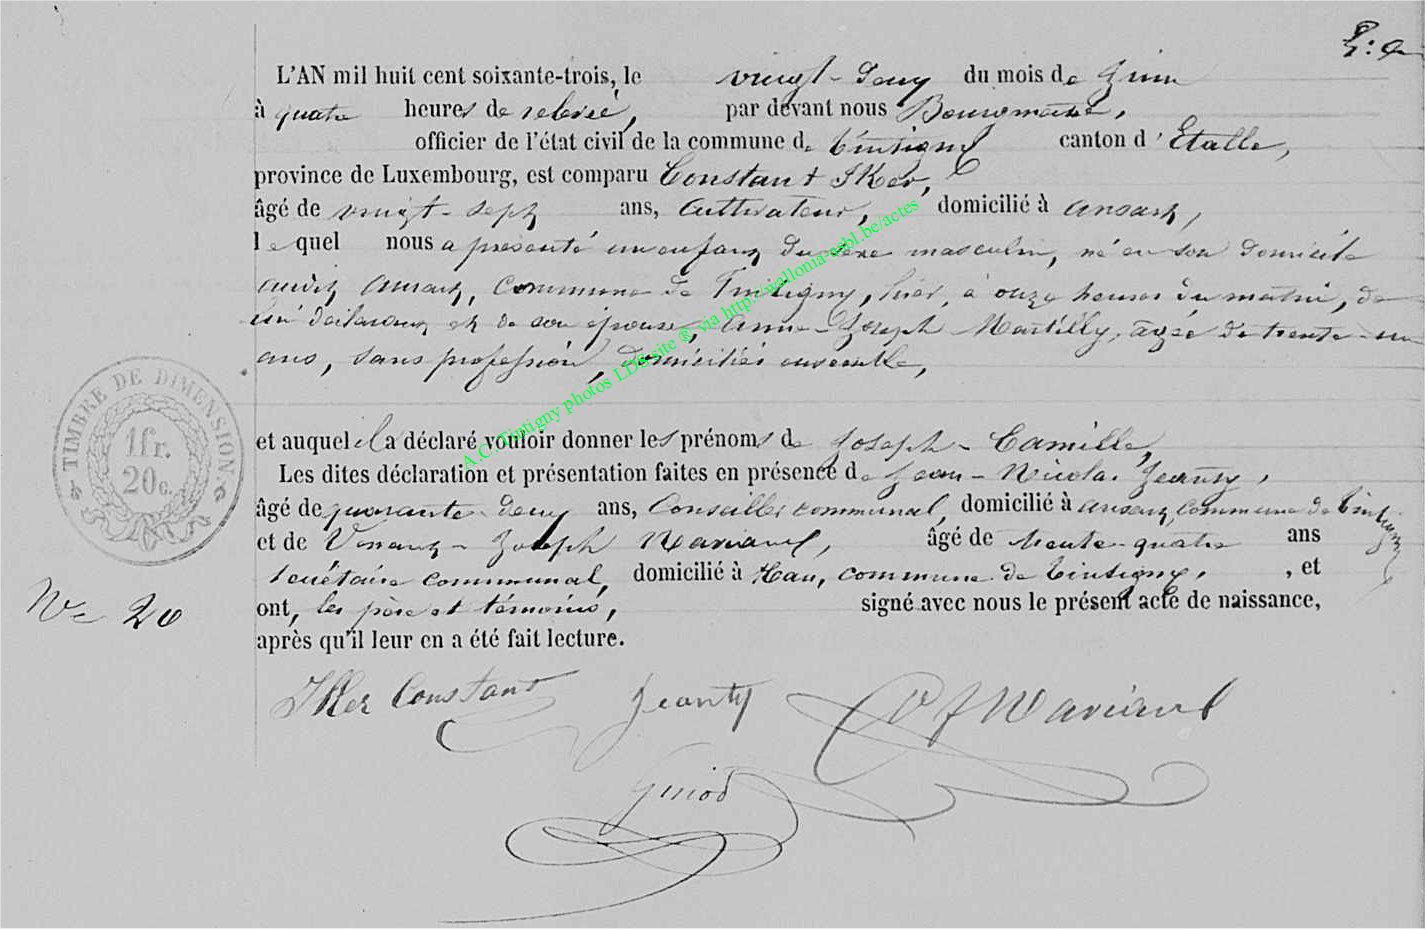 L'AN mil huit cent soixante-trois, le vingt-deux du mois de Juin
à quatre heures de relevée, par devant nous Bourgmestre,
officier de l'état civil de la commune de Tintigny canton d'Etalle,
province de Luxembourg, est comparu Constant Iker,
âgé de vingt-sept ans, Cultivateur, domicilié à Ansart,
lequel nous a présenté un enfant du sexe masculin, né en son domicile
audit Ansart, Commune de Tintigny, hier, à onze heures du matin, de
lui déclarant et de son épouse, Anne-Joseph Martilly, agée de trente-un
ans, sans profession, domiciliés ensemble,
et auquel il a déclaré vouloir donner les prénoms de Joseph-Camille,
Les dites déclaration et présentation faites en présence de Jean-Nicolas Jeanty,
âgé de quarante-deux ans, Conseiller communal, domicilié à Ansart, commune de Tintigny,
et de Joseph Mariavel, âgé de trente-quatre ans
secrétaire communal, domicilié à Han, commune de Tintigny, , et
ont, les père et témoins, signé avec nous le présent acte de naissance,
après qu'il leur en a été fait lecture.
TIMBRE DE DIMENSION
1fr.
20c.
No 20
IKer Constant Jeanty
A.C. Tintigny photos LDS site @ via http://wallonia-asbl.be/actes